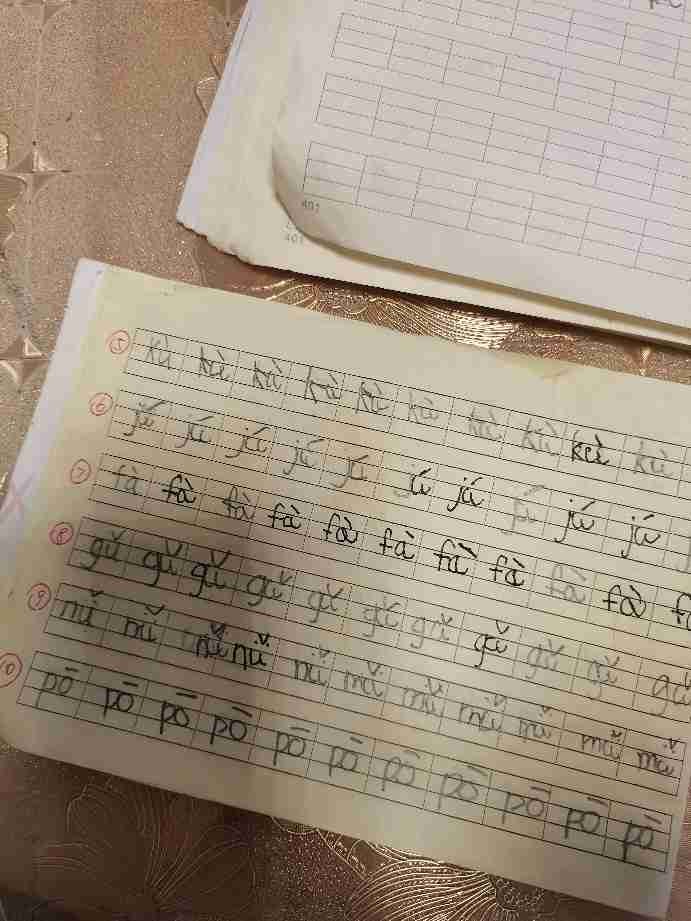 401
401
5 kù kù kù kù kù kù kù kù kù kù
6 jú jú jú jú jú jú jú jú jú jú
7 fà fà fà fà fà fà fà fà fà fà fà
8 gǔ gǔ gǔ gǔ gǔ gǔ gǔ gǔ gǔ gǔ gǔ
9 nǚ nǚ nǚ nǚ nǚ nǚ nǚ nǚ nǚ nǚ nǚ
10 pō pō pō pō pō pō pō pō pō pō pō